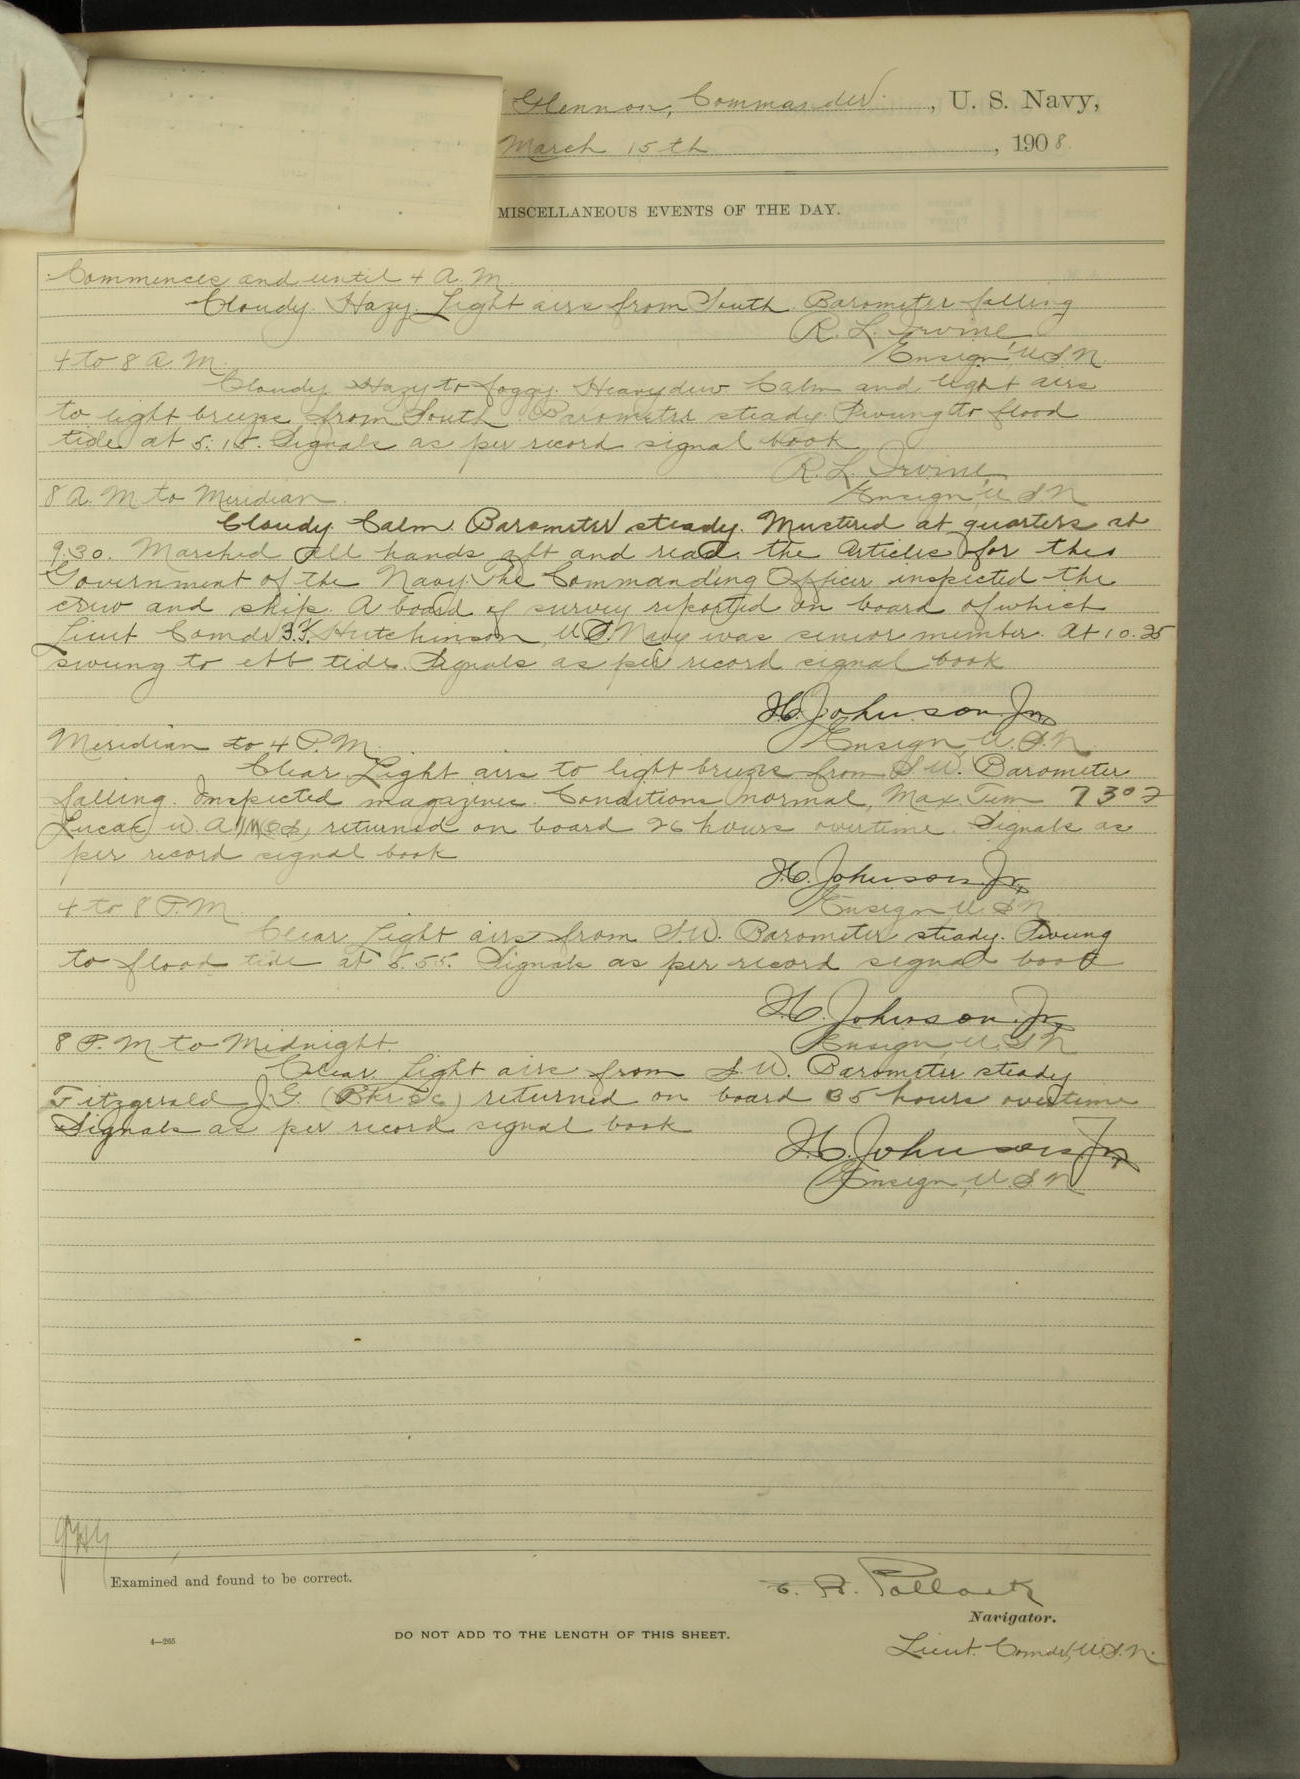 Glennon, Commander, U. S. Navy,
March 15th, 1908.
MISCELLANEOUS EVENTS OF THE DAY.
Commences and until 4 A.M.
Cloudy. Hazy. Light airs from South. Barometer falling
R. L. Irvine
Ensign, U.S.N.
4 to 8 A.M.
Cloudy Hazy to foggy. Heavy dew Calm and light airs
to light breeze from South. Barometer steady. Swung to flood
tide at 5.15. Signals as per record signal book
R. L. Irvine
Ensign, U.S.N.
8 A.M. to Meridian.
Cloudy Calm. Barometer steady. Mustered at quarters at
9.30. Marched all hands aft and read the Articles for the
Government of the Navy. The Commanding Officer inspected the
crew and ship. A board of survey reported on board of which
Lieut Comdr Hutchinson, U.S. Navy was senior member. At 10.25
swung to ebb tide. Signals as per record signal book
H. Johnson Jr.
Ensign, U.S.N.
Meridian to 4 P.M.
Clear. Light airs to light breeze from S.W. Barometer
falling. Inspected magazines. Conditions normal, Max. Tem 73 02
Lucas W. A. returned on board 26 hours overtime. Signals as
per record signal book
H. Johnson Jr.
Ensign, U.S.N.
4 to 8 P.M.
Clear Light airs from S.W. Barometer steady. Swung
to flood tide at 5.55. Signals as per record signal book
H. Johnson Jr.
Ensign, U.S.N.
8 P.M. to Midnight.
Clear Light airs from S.W. Barometer steady
Fitzgerald J.G. (Bkr 2c) returned on board 35 hours overtime
Signals as per record signal book
H. Johnson Jr.
Ensign, U.S.N.
Examined and found to be correct.
E. R. Pollock
Navigator.
4—265
DO NOT ADD TO THE LENGTH OF THIS SHEET.
Lieut. Comdr, U.S.N.